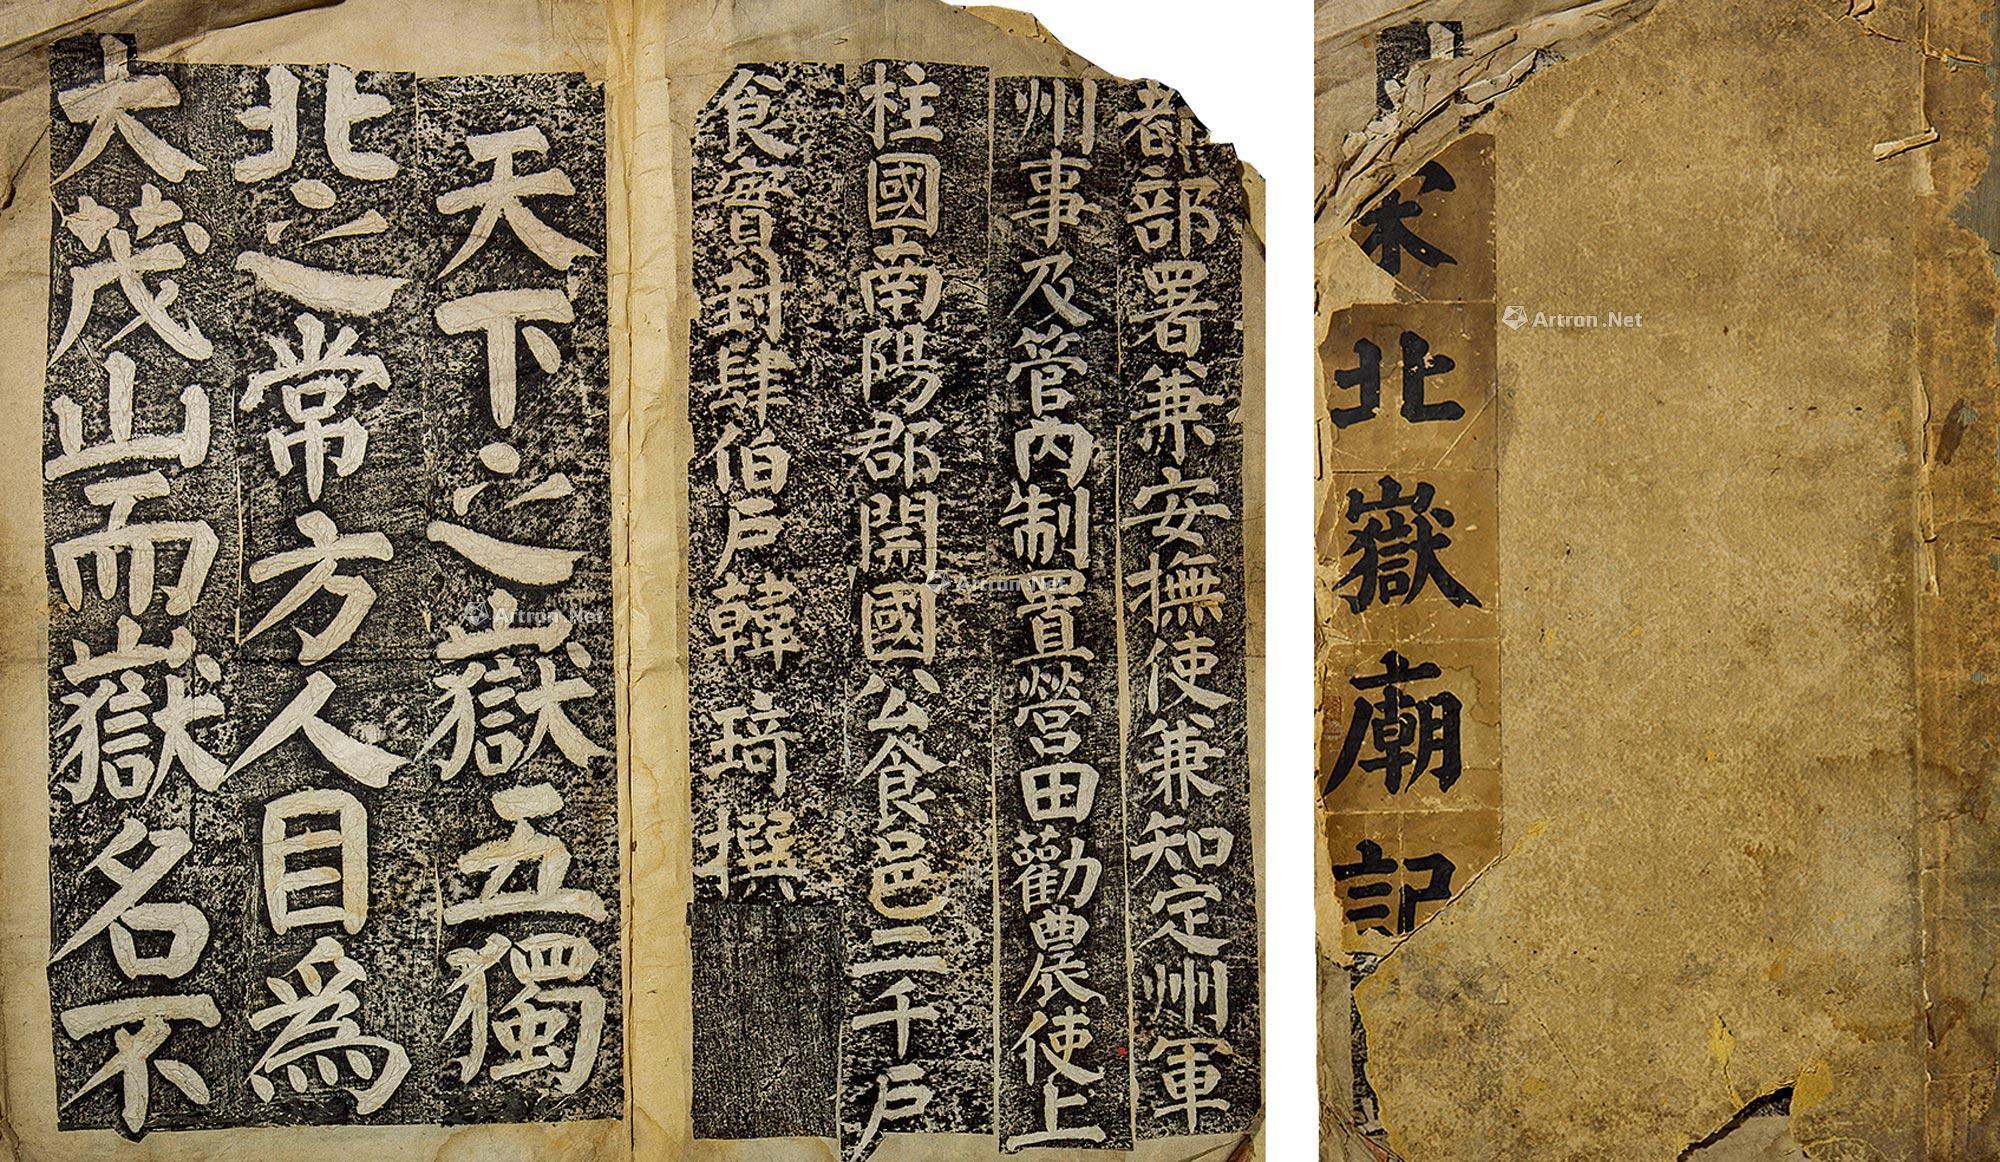 都部署兼安撫使兼知定州軍
州事及管內制置營田勸農使上
柱國南陽郡開國公食邑二千戶
食實封肆伯戶韓琦撰
天下之嶽五獨
北之常方人目為
大茂山而嶽名不
宋北嶽廟記
Artron.Net
Artron.Net
Artron.Net